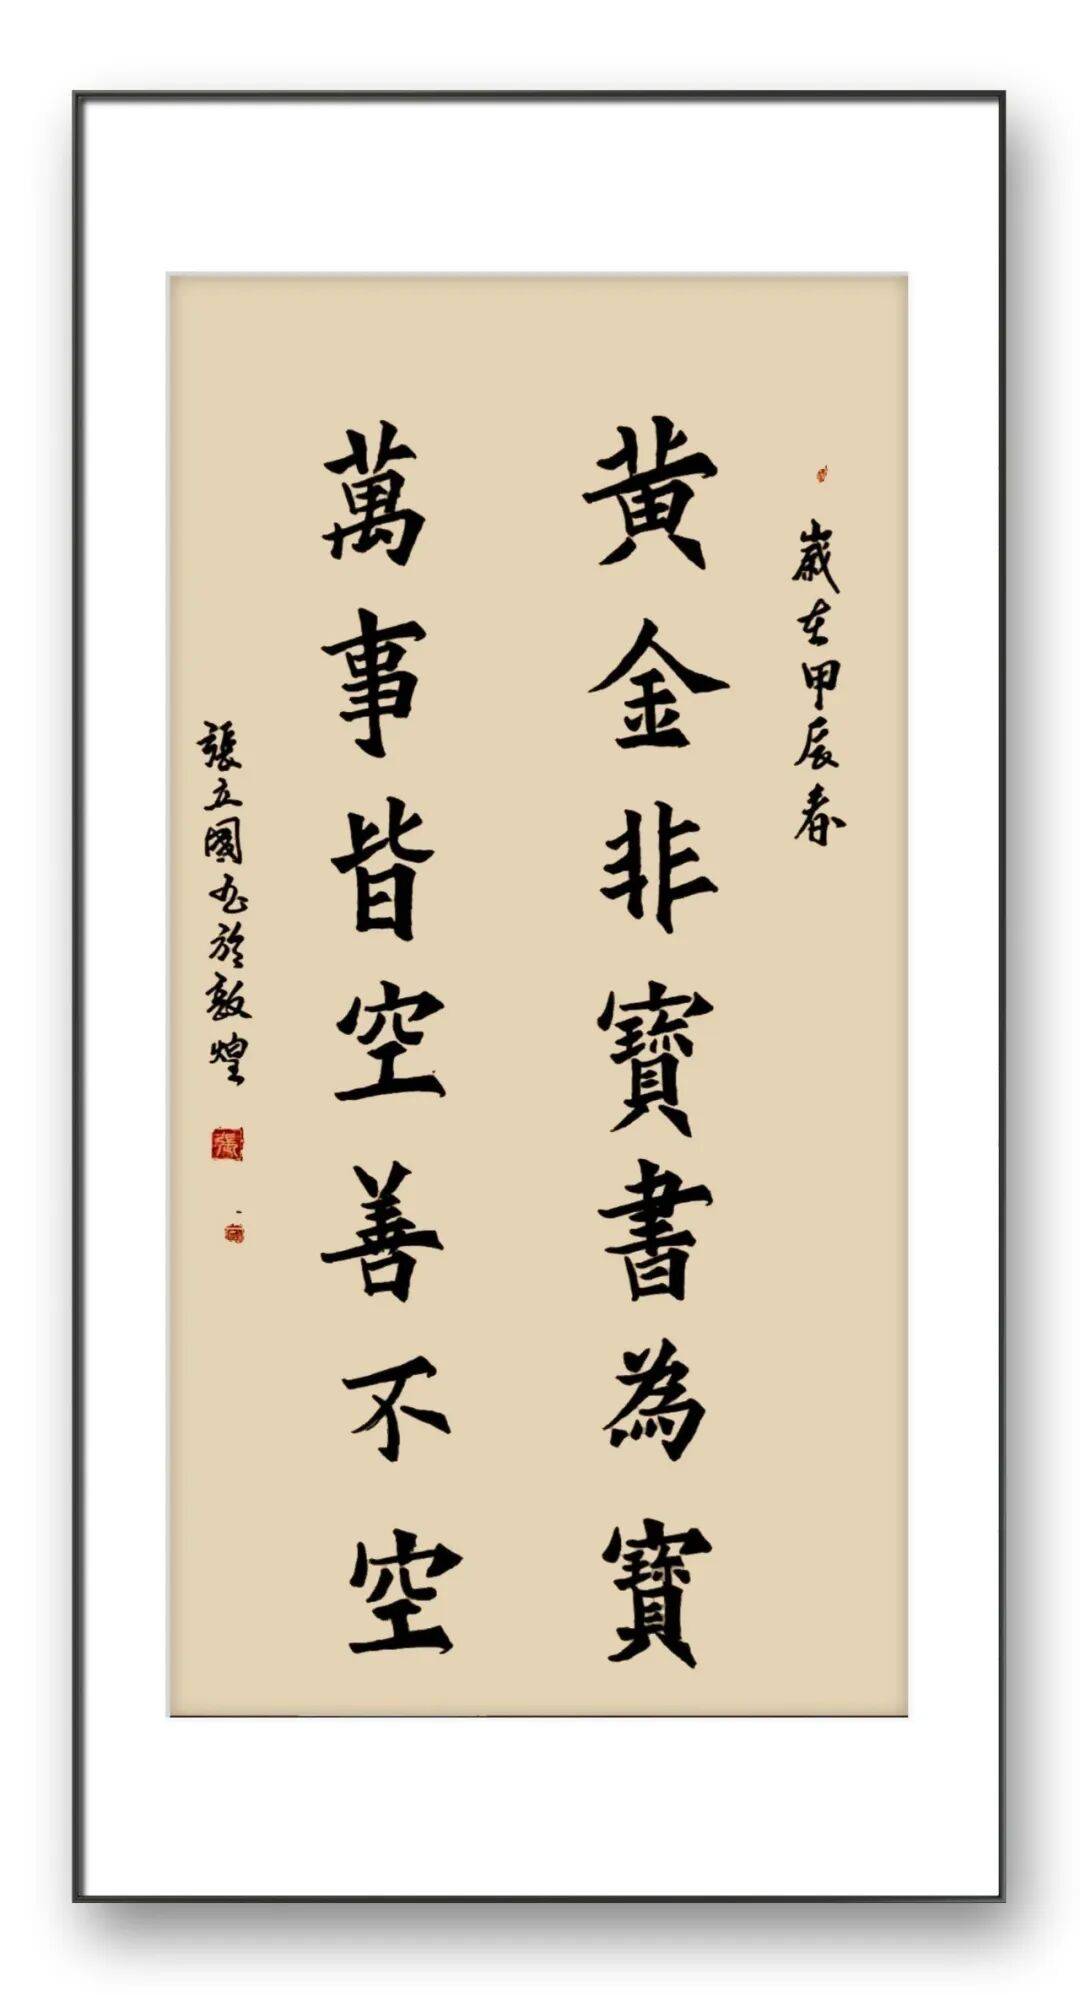 歲在甲辰春
黄金非寶書為寶
萬事皆空善不空
張立國书於敦煌
張